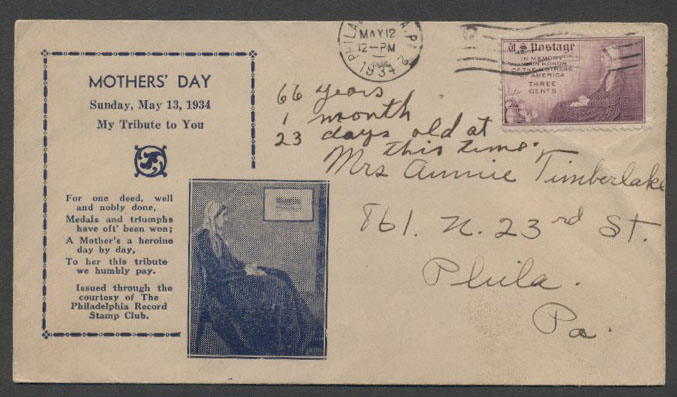 MOTHERS' DAY
Sunday, May 13, 1934
My Tribute to You
For one deed, well
and nobly done,
Medals and triumphs
have oft' been won;
A Mother's a heroine
day by day,
To her this tribute
we humbly pay.
Issued through the
courtesy of The
Philadelphia Record
Stamp Club.
MAY 12
12-PM
1934
U.S. Postage
IN MEMORY
AND IN HONOR
OF THE MOTHERS
OF AMERICA
THREE
CENTS
66 years
1 month
23 days old at
this time.
Mrs Annie Timberlake
861. N. 23rd St.
Phila.
Pa.